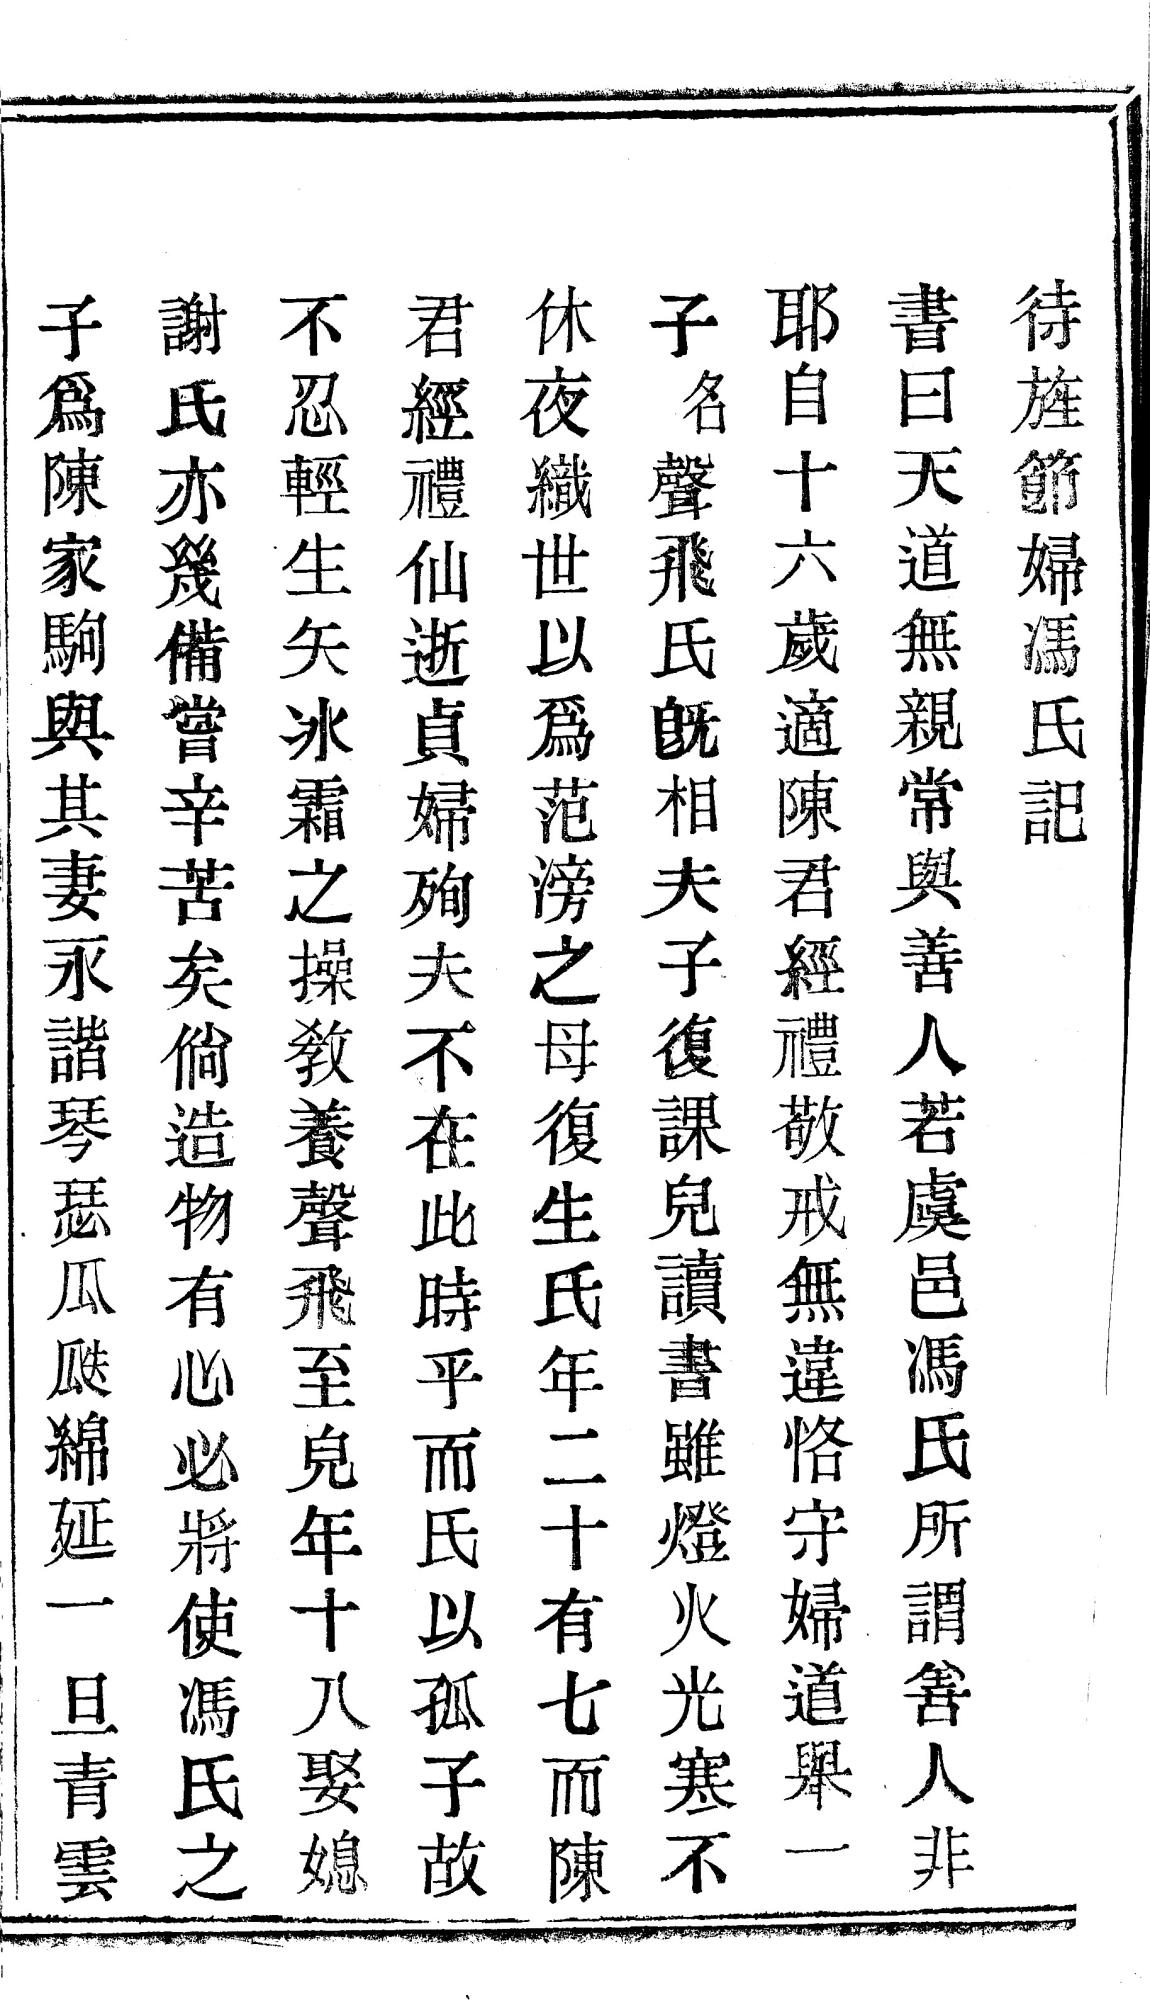 待旌節婦馮氏記
書曰天道無親常與善人若虞邑馮氏所謂善人非
耶自十六歲適陳君經禮敬戒無違恪守婦道舉一
子名聲飛氏既相夫子復課兒讀書雖燈火光寒不
休夜織世以為范滂之母復生氏年二十有七而陳
君經禮仙逝貞婦殉夫不在此時乎而氏以孤子故
不忍輕生矢冰霜之操教養聲飛至兒年十八娶媳
謝氏亦幾備嘗辛苦矣倘造物有心必將使馮氏之
子爲陳家駒與其妻永諧琴瑟瓜瓞綿延一旦青雲